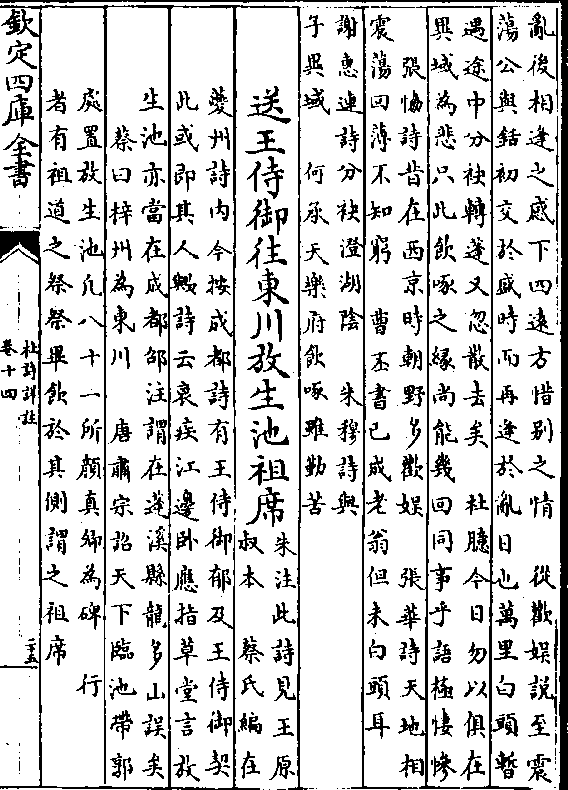 亂後相逢之感下四遠方惜别之情　從歡娱説至震
蕩公與銛初交於盛時而再逢於亂日也萬里白頭暫
遇途中分袂轉蓬又忽散去矣　杜臆今日勿以俱在
異域為悲只此飲啄之緣尚能幾回同事乎語極悽慘
張協詩昔在西京時朝野多歡娱　張華詩天地相
震蕩回薄不知窮　曹丕書已成老翁但未白頭耳
謝惠連詩分袂澄湖陰　朱穆詩與
子異域　何承天樂府飲啄雖勤苦
送王侍御往東川放生池祖席
朱注此詩見王原
叔本　蔡氏編在
夔州詩内今按成都詩有王侍御郁及王侍御契
此或即其人歟詩云衰疾江邊卧應指草堂言放
生池亦當在成都邰注謂在蓬溪縣龍多山誤矣
蔡曰梓州為東川　唐肅宗詔天下臨池帶郭
處置放生池凡八十一所顔真卿為碑　行
者有祖道之祭祭畢飲於其側謂之祖席
欽定四庫全書
杜詩詳註
卷十四
二五